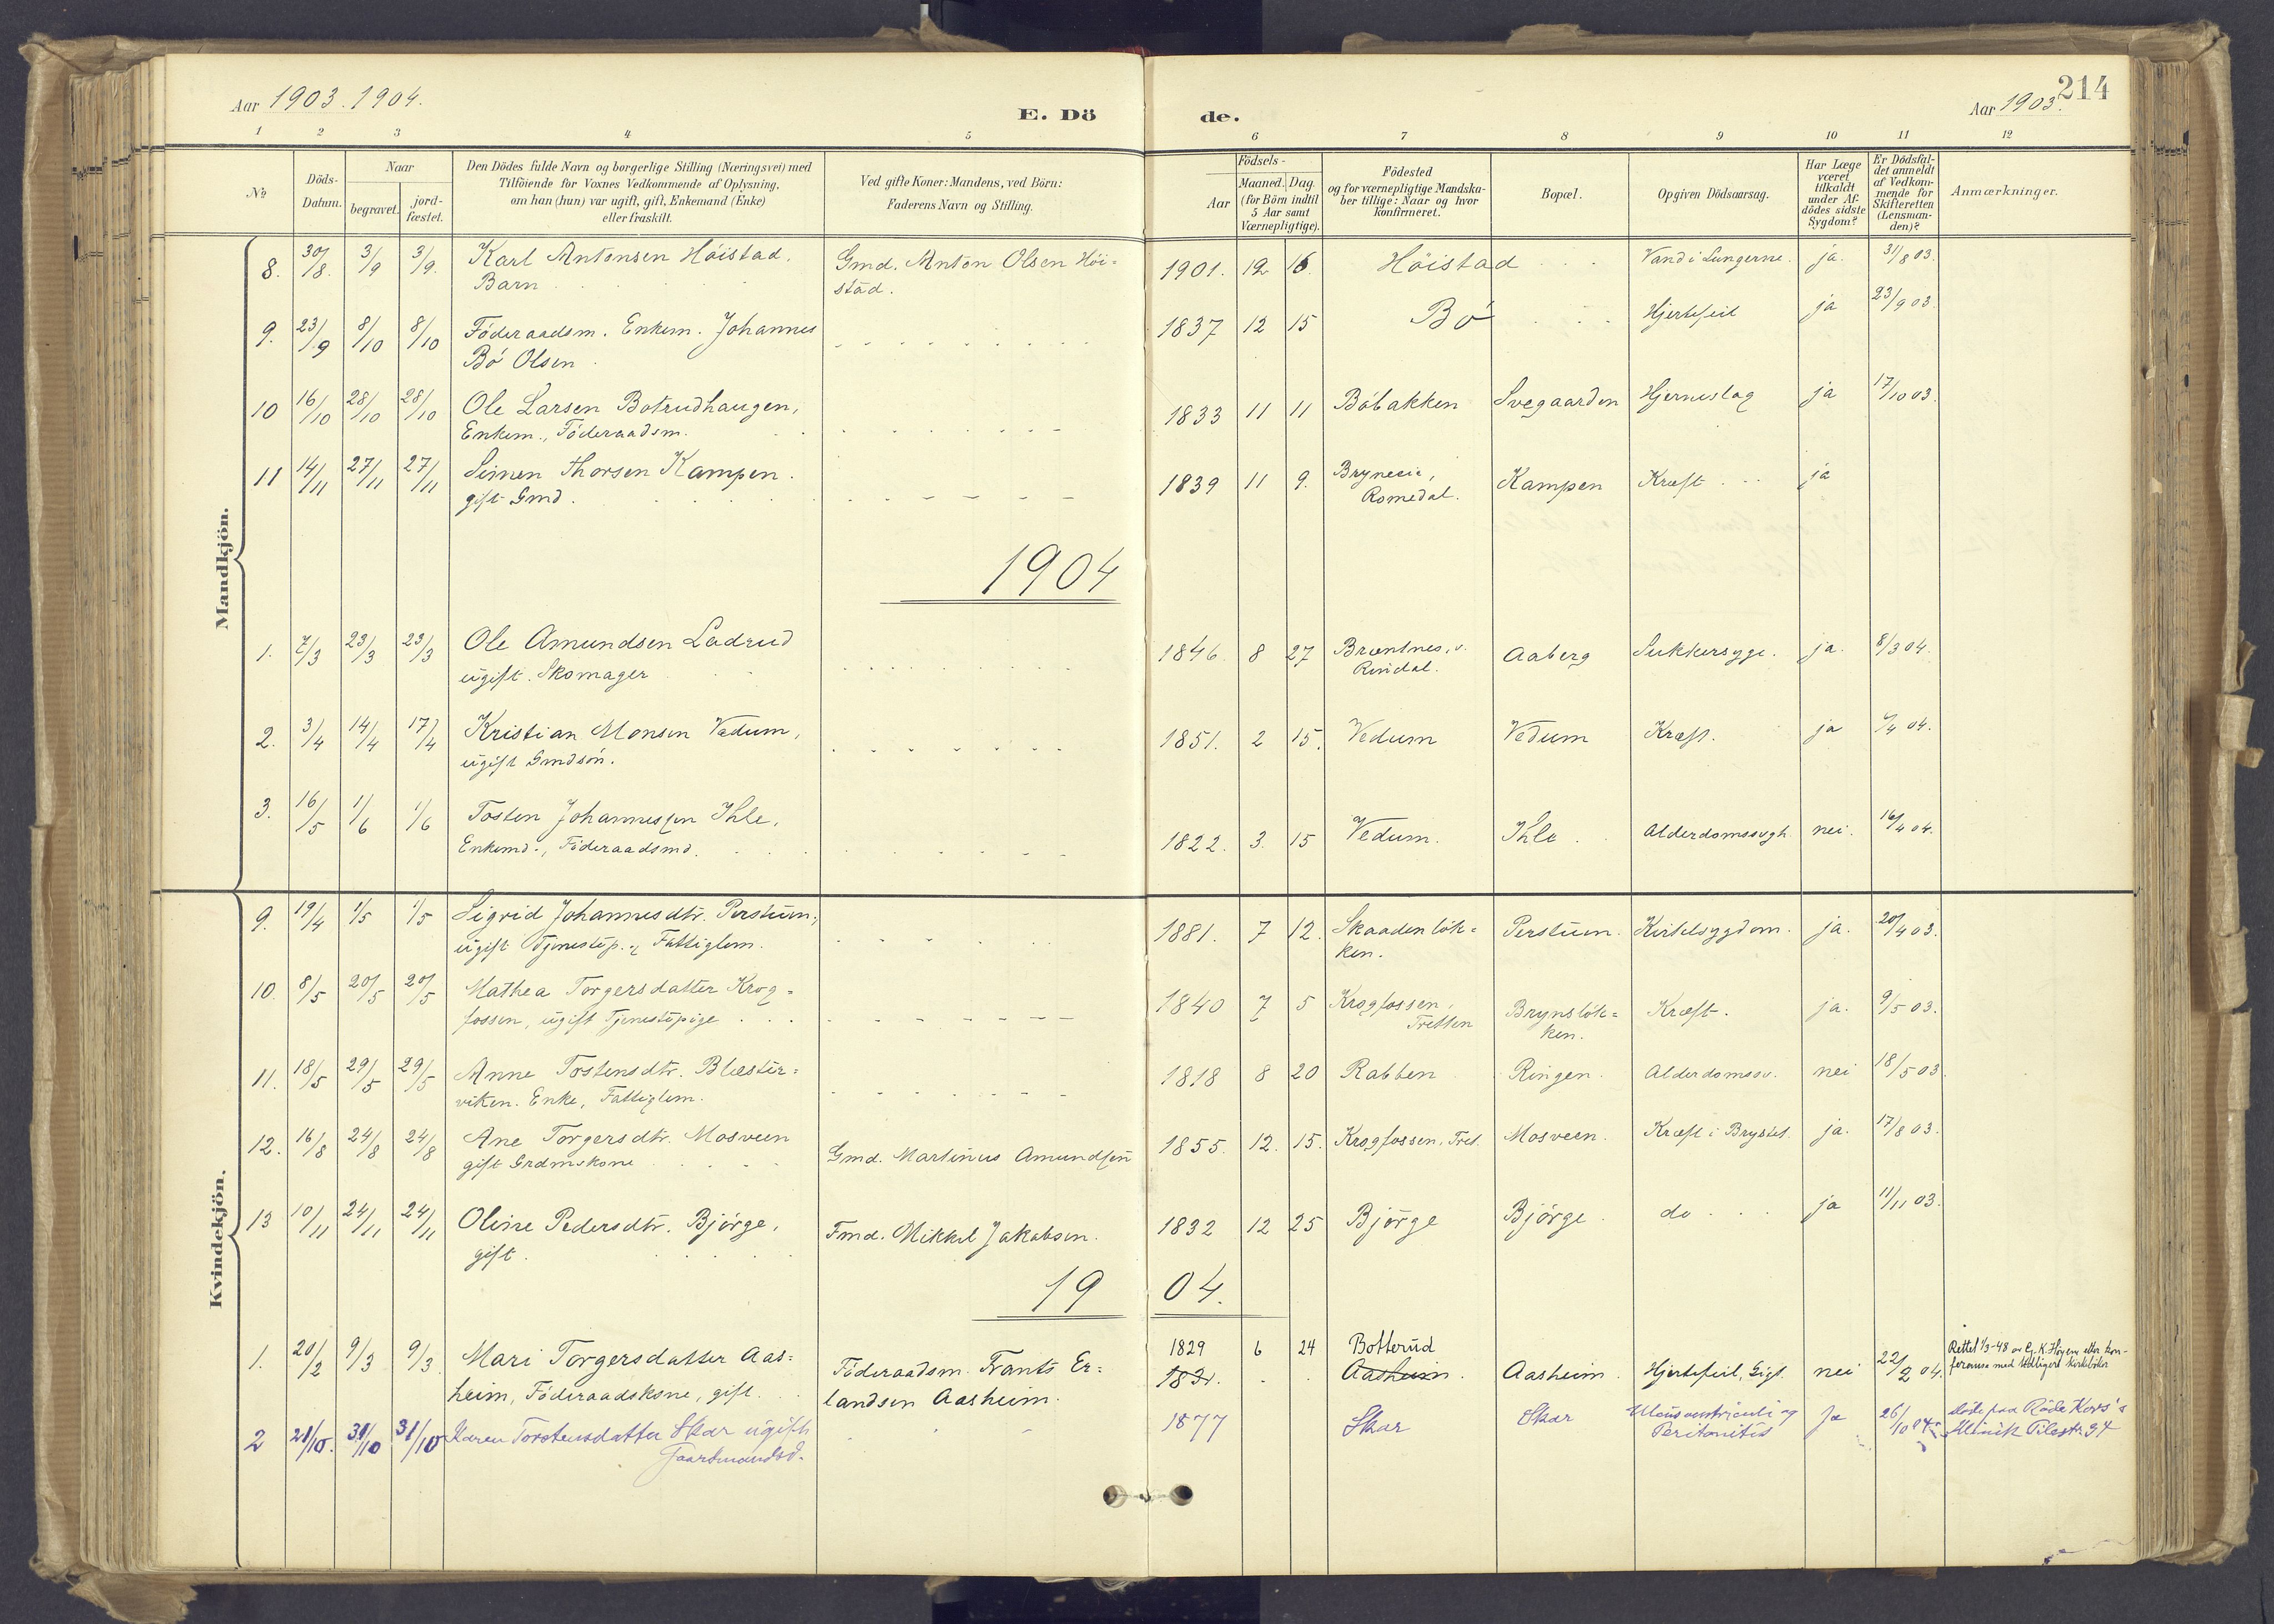 Aar 1903. 1904.
E. Dö
de.
Aar 1903.
214
1 2 3 4 5 6 7 8 9 10 11 12
No
Döds-
Datum.
Naar
begravet.
jord-
fæstet.
Den Dödes fulde Navn og borgerlige Stilling (Næringsvei) med
Tilföiende for Voxnes Vedkommende af Oplysning,
om han (hun) var ugift, gift, Enkemand (Enke)
eller fraskilt.
Ved gifte Koner: Mandens, ved Börn:
Faderens Navn og Stilling.
Födsels-
Aar
Maaned. Dag.
(for Börn indtil
5 Aar samt
Værnepligtige).
Födested
og for værnepligtige Mandska-
ber tillige: Naar og hvor
konfirmeret.
Bopæl.
Opgiven Dödsaarsag.
Har Læge
været
tilkaldt
under Af-
dödes sidste
Sygdom?
Er Dödsfal-
det anmeldt
af Vedkom-
mende for
Skifteretten
(Lensman-
den)?
Anmærkninger.
Mandkjön.
8. 30/8. 3/9 3/9. Karl Antonsen Höistad, Gmd. Anton Olsen Höi= 1901. 12 16. Höistad Vand i Lungerne. ja. 31/8 03.
Barn stad.
9. 23/9 8/10 8/10 Föderaadsm. Enkem. Johannes 1837 12 15 Bö Hjertefeil ja 23/9 03.
Bö Olsen
10 16/10 28/10 28/10 Ole Larsen Botrudhaugen, 1833 11 11 Böbakken Svegaarden Hjerneslag ja 17/10 03.
Enkem., Föderaadsm.
11 14/11 27/11 27/11 Simen Thorsen Kampen. 1839 11 9. Kampen Kræft ja
gift Gmd. Romedal.
1904
1. 7/3 23/3 23/3 Ole Amundsen Ladrud 1846. 8 27 Aaberg Sukkersyge. ja. 8/3 04.
ugift. Skomager
2. 3/4 14/4 17/4 Kristian Monsen Vedum, 1851. 2 15. Vedum Vedum Kræft. ja /4 04.
ugift Gmdsön.
3. 16/5 1/6 1/6 Tosten Johannessen Ihle, 1822. 3. 15 Vedum. Ihle. Alderdomssvgh. nei. 16/4 04.
Enkemd., Föderaadsmd.
Kvindekjön.
9. 19/4 1/5 1/5 Sigrid Johannesdtr. Perstuen, 1881. 7 12. Skaadenlök= Perstuen. Kirtelsygdom. ja. 20/4 03.
ugift Tjenestep., Fattiglem. ken.
10. 8/5 20/5 20/5 Mathea Torgersdatter Krog= 1840 7 5 Krogfossen, Brynslök= Kræft. ja. 9/5 03.
fossen, ugift Tjenestepige Tretten ken.
11. 18/5 29/5 29/5 Anne Tostensdtr. Blæster= 1818 8 20 Rabben Ringen. Alderdomssv. nei 18/5 03.
viken. Enke, Fattiglem.
12. 16/8 24/8 24/8 Ane Torgersdtr. Mosveen Gmd. Martinus Amundsen 1855. 12. 15. Krogfossen, Tret. Mosveen. Kræft i Brystet. ja. 17/8 03.
gift Grdmskone
13 10/11 24/11 24/11 Oline Pedersdtr. Bjørge, Fmd. Mikkel Jakobsen. 1832 12 25 Bjørge Bjørge. do ja 11/11 03.
gift.
19 04.
1829 6 24 Botterud
1. 20/2 9/3 9/3 Mari Torgersdatter Aas= Föderaadsm. Frants Er= Aasheim. Aasheim. Hjertefeil, Gigt. nei 22/2 04. Rettet 1/3-48 av
heim, Föderaadskone, gift. landsen Aasheim. med kirkebøker
2 21/10. 31/10 31/10 Karen Torstensdatter Skar ugift 1877 Skar Skar Ulcus ventriculi og Ja 26/10 04 døde paa Røde Kors's
Gaardmandsd. Peritonitis Klinik Pilestr. 37